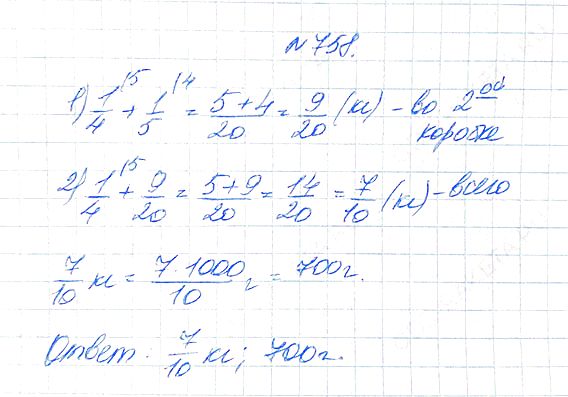 №758.
1) 1/4 (5 + 1/5 (4 = 5+4/20 = 9/20 (кг) - во 2ой
коробке
2) 1/4 (5 + 9/20 = 5+9/20 = 14/20 = 7/10 (кг) - всего
7/10 кг = 7·1000/10 г = 700г.
Ответ: 7/10 кг; 700г.